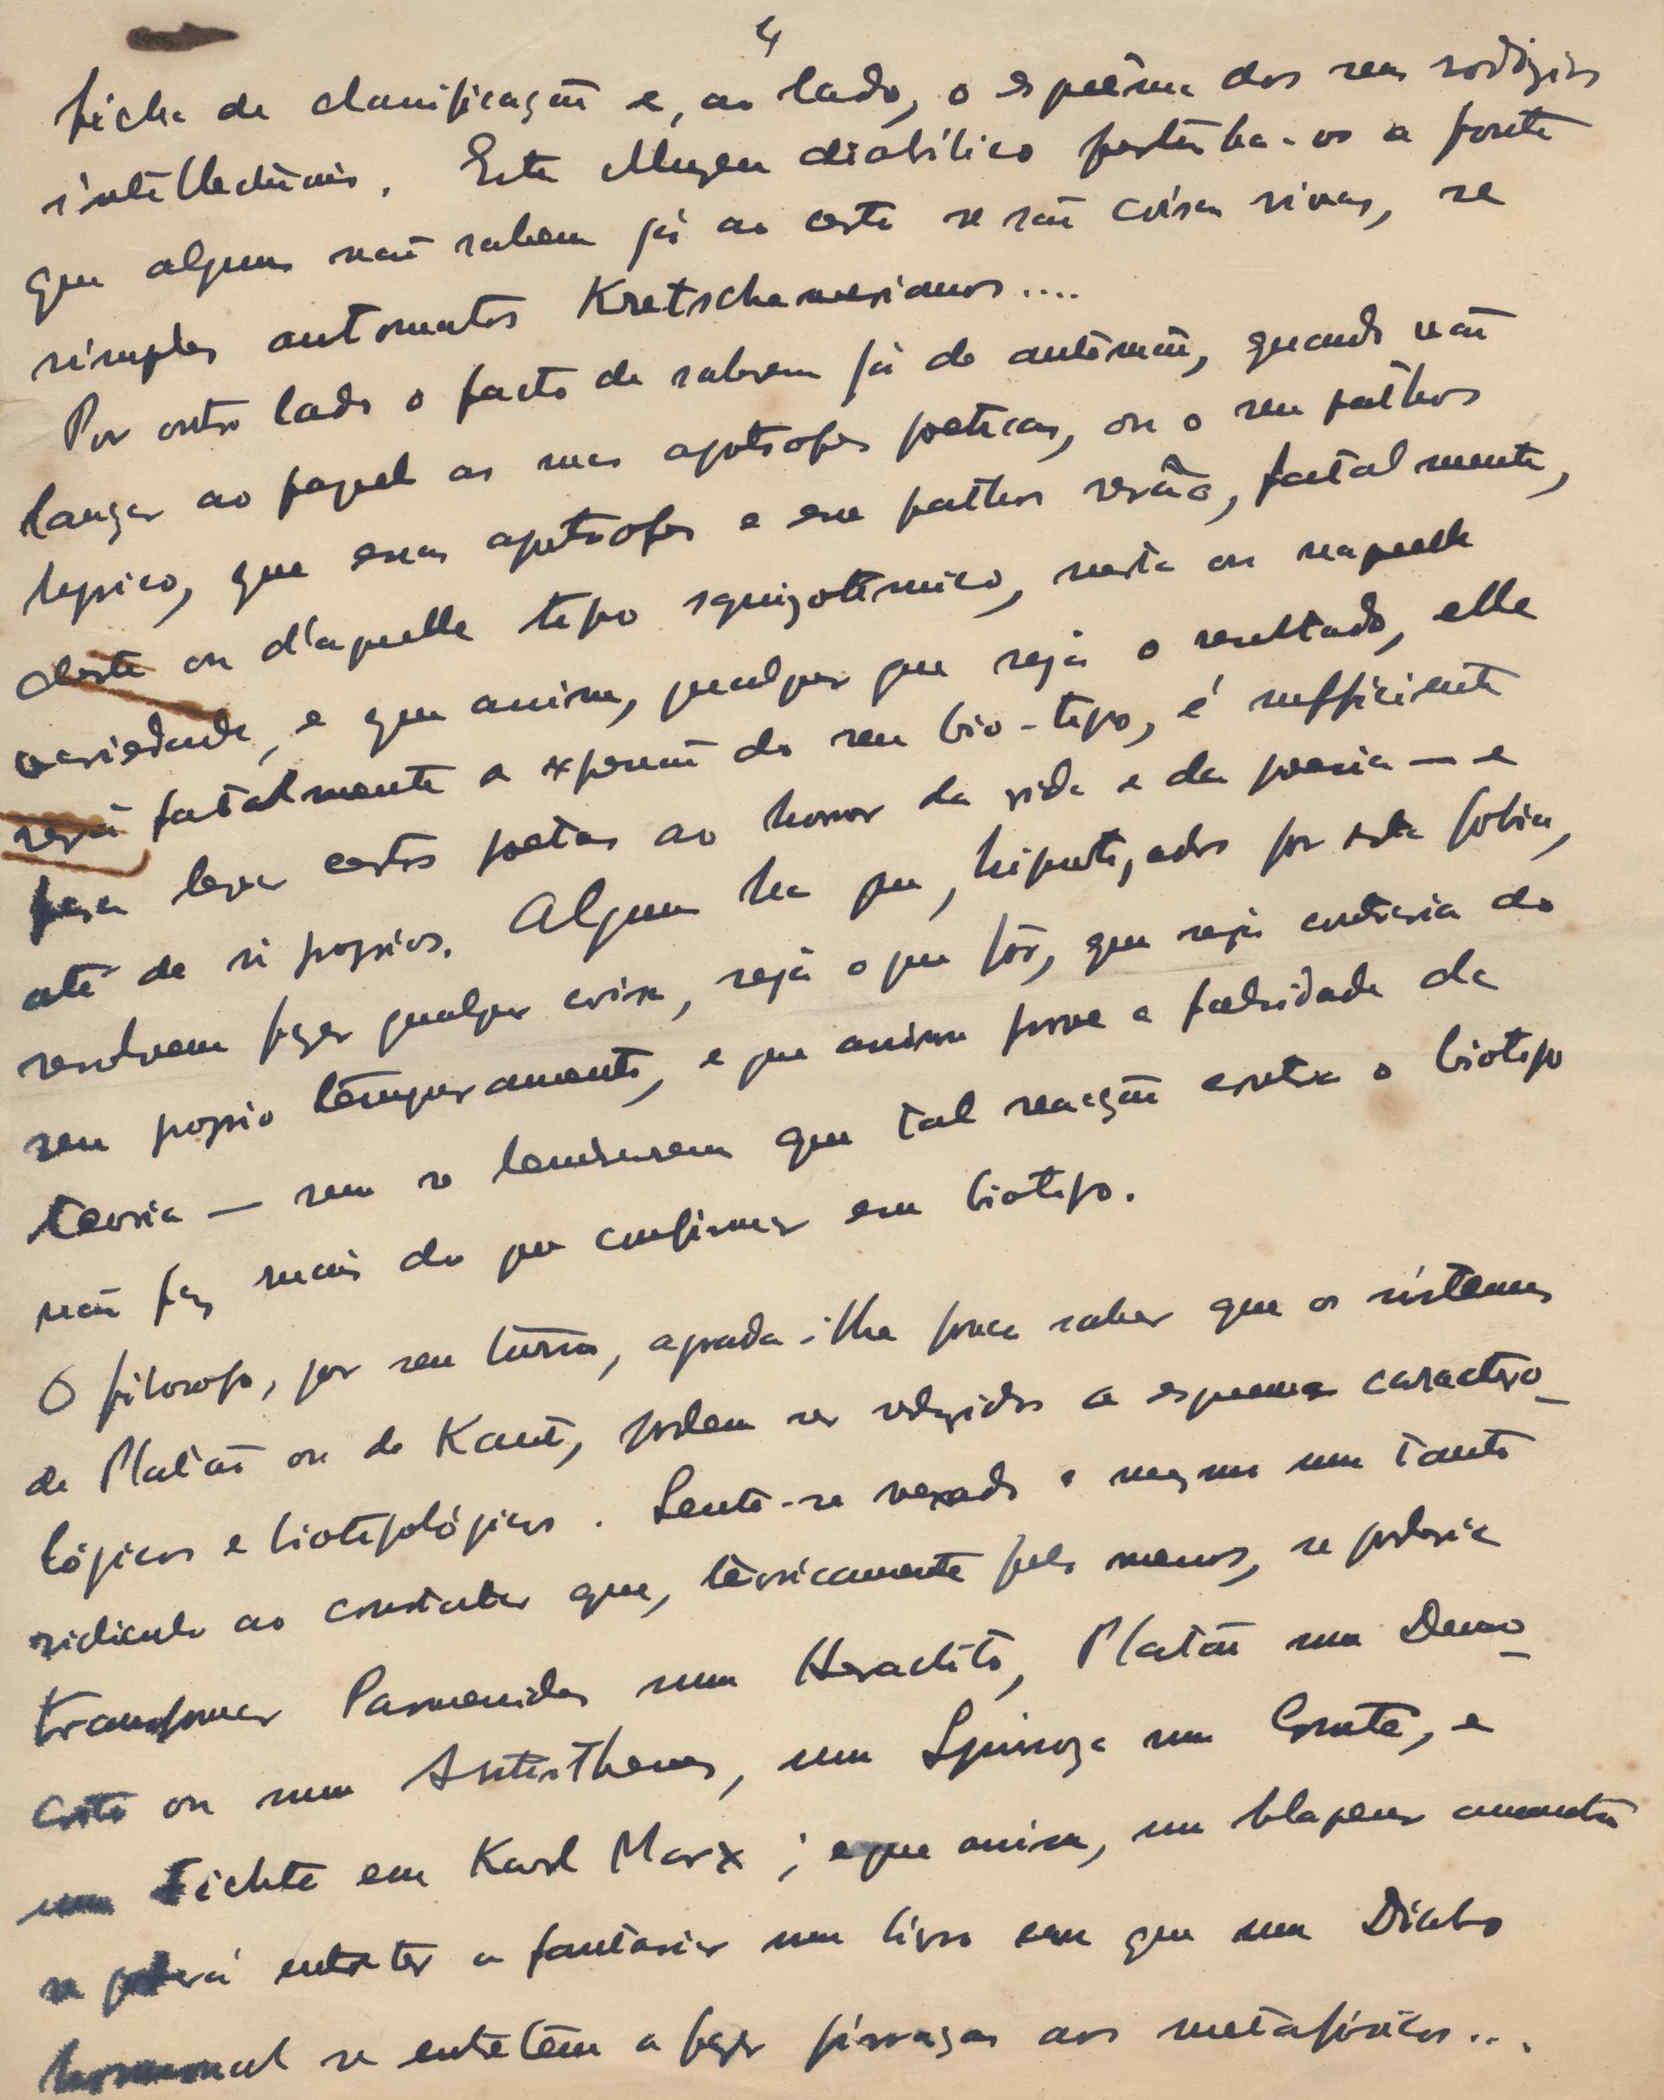 4
ficha de classificação e, ao lado, o esquêma dos seus rodizios
intellectuais. Este Museu diabólico perturba-os a ponto
que alguns não sabem já ao certo se são coisas vivas, se
simples automatos Kretschamerianos....
Por outro lado o facto de saberem já de antemão, quando vão
lançar ao papel as suas apostrofes poeticas, ou o seu pathos
lyrico, que essas apostrofes e esse pathos serão, fatalmente,
deste ou d'aquelle tipo squizotimico, nesta ou naquella
variedade, e que assim, qualquer que seja o resultado, elle
será fatalmente a expressão do seu bio-tipo, é sufficiente
para levar certos poetas ao horror da vida e da poesia — e
até de si proprios. Alguns ha que, hipnotizados por esta fobia,
resolvem fazer qualquer coisa, seja o que fôr, que seja contraria do
seu proprio temperamento, e que assim prove a falsidade da
teoria — sem se lembrarem que tal reacção contra o biotipo
não faz mais do que confirmar esse biotipo.
O filosofo, por seu turno, agrada-lhe pouco saber que os sistemas
de Platão ou de Kant, podem ser reduzidos a esquemas caractero-
lógicos e biotipológicos. Sente-se vexado e mesmo um tanto
ridiculo ao constatar que, teóricamente pelo menos, se poderia
transformar Parmenides num Heraclito, Platão num Demo-
crito ou num Antisthenes, um Spinoza num Comte, e
um Fichte em Karl Marx; e que assim, um blagueur
se poderá entreter a fantasiar um livro em que um Diabo
hormonal se entretem a fazer pirraças aos metafísicos...